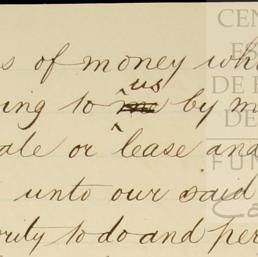 s of money wh
us
ing to me by m
ale or lease and
unto our said
ority to do and per
CEN
ES
DE
DE
FU